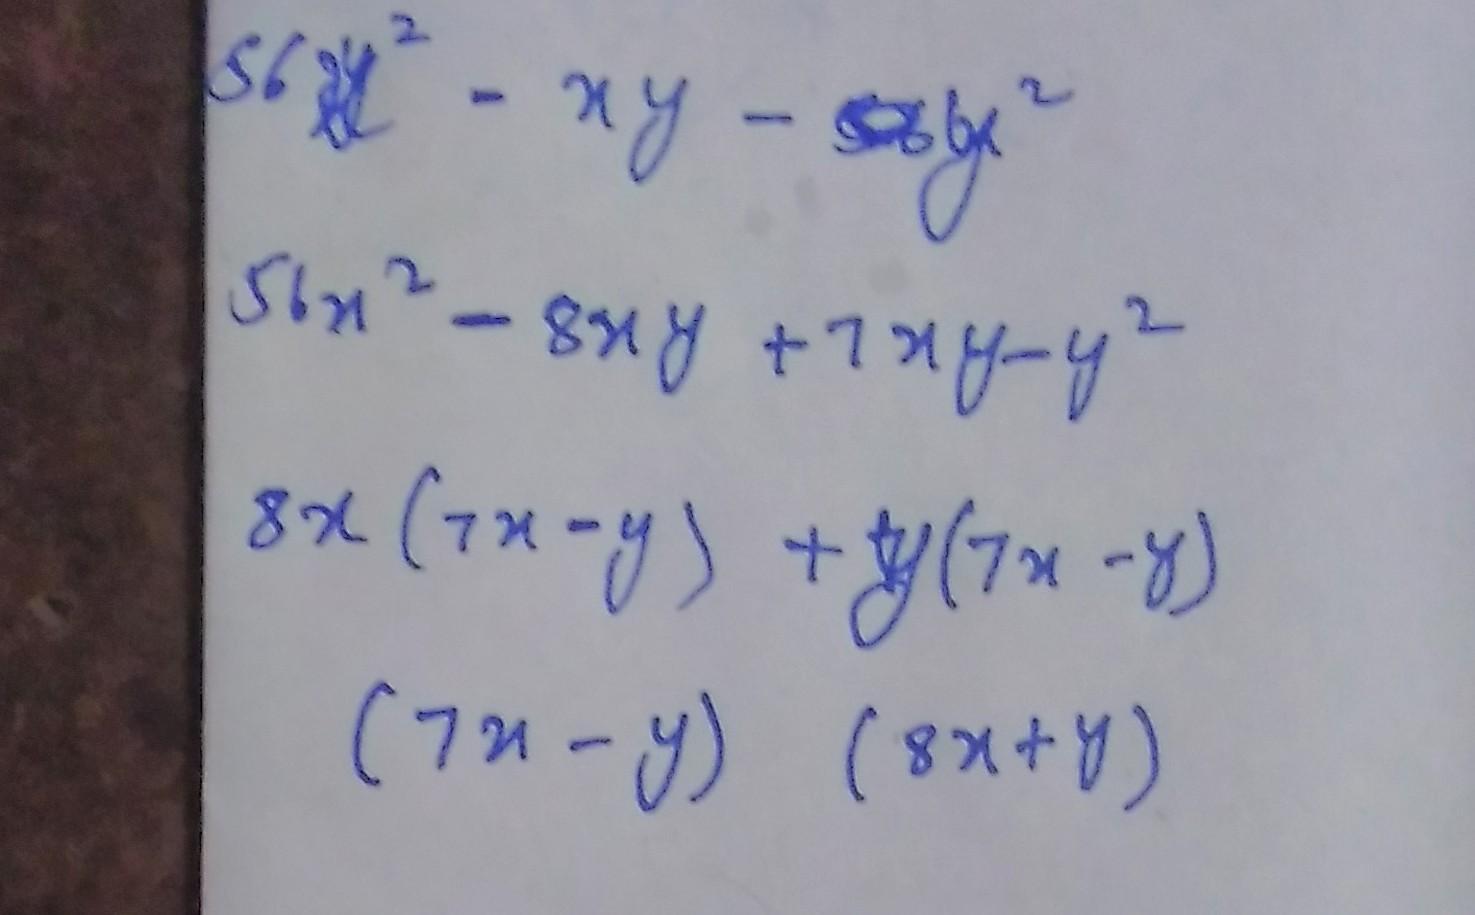 56x² - xy - y²
56x² - 8xy + 7xy - y²
8x (7x - y) + y (7x - y)
(7x - y) (8x + y)